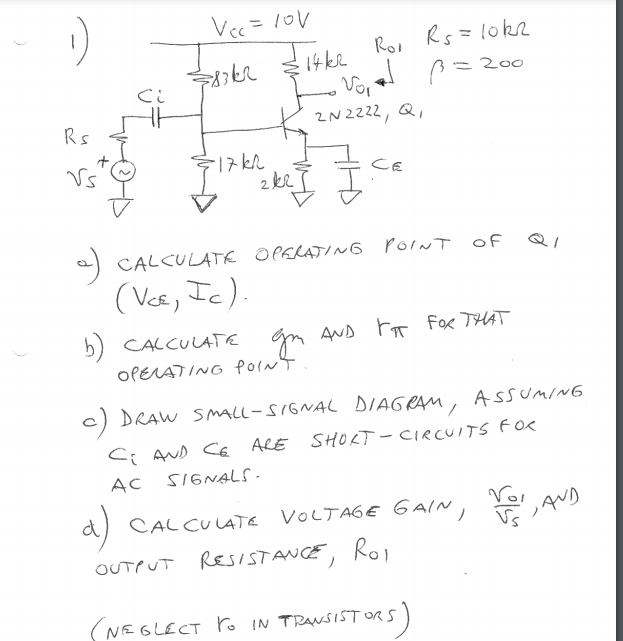 1)
Vcc = 10V
Rs = 10kΩ
β = 200
83kΩ
14kΩ
Ro1
Vo1
Ci
2N2222, Q1
Rs
+
Vs
17kΩ
2kΩ
CE
a) CALCULATE OPERATING POINT OF Q1
(VCE, Ic).
b) CALCULATE gm AND rπ FOR THAT
OPERATING POINT.
c) DRAW SMALL-SIGNAL DIAGRAM, ASSUMING
Ci AND CE ARE SHORT-CIRCUITS FOR
AC SIGNALS.
d) CALCULATE VOLTAGE GAIN, Vo1/Vs, AND
OUTPUT RESISTANCE, Ro1
(NEGLECT ro IN TRANSISTORS)